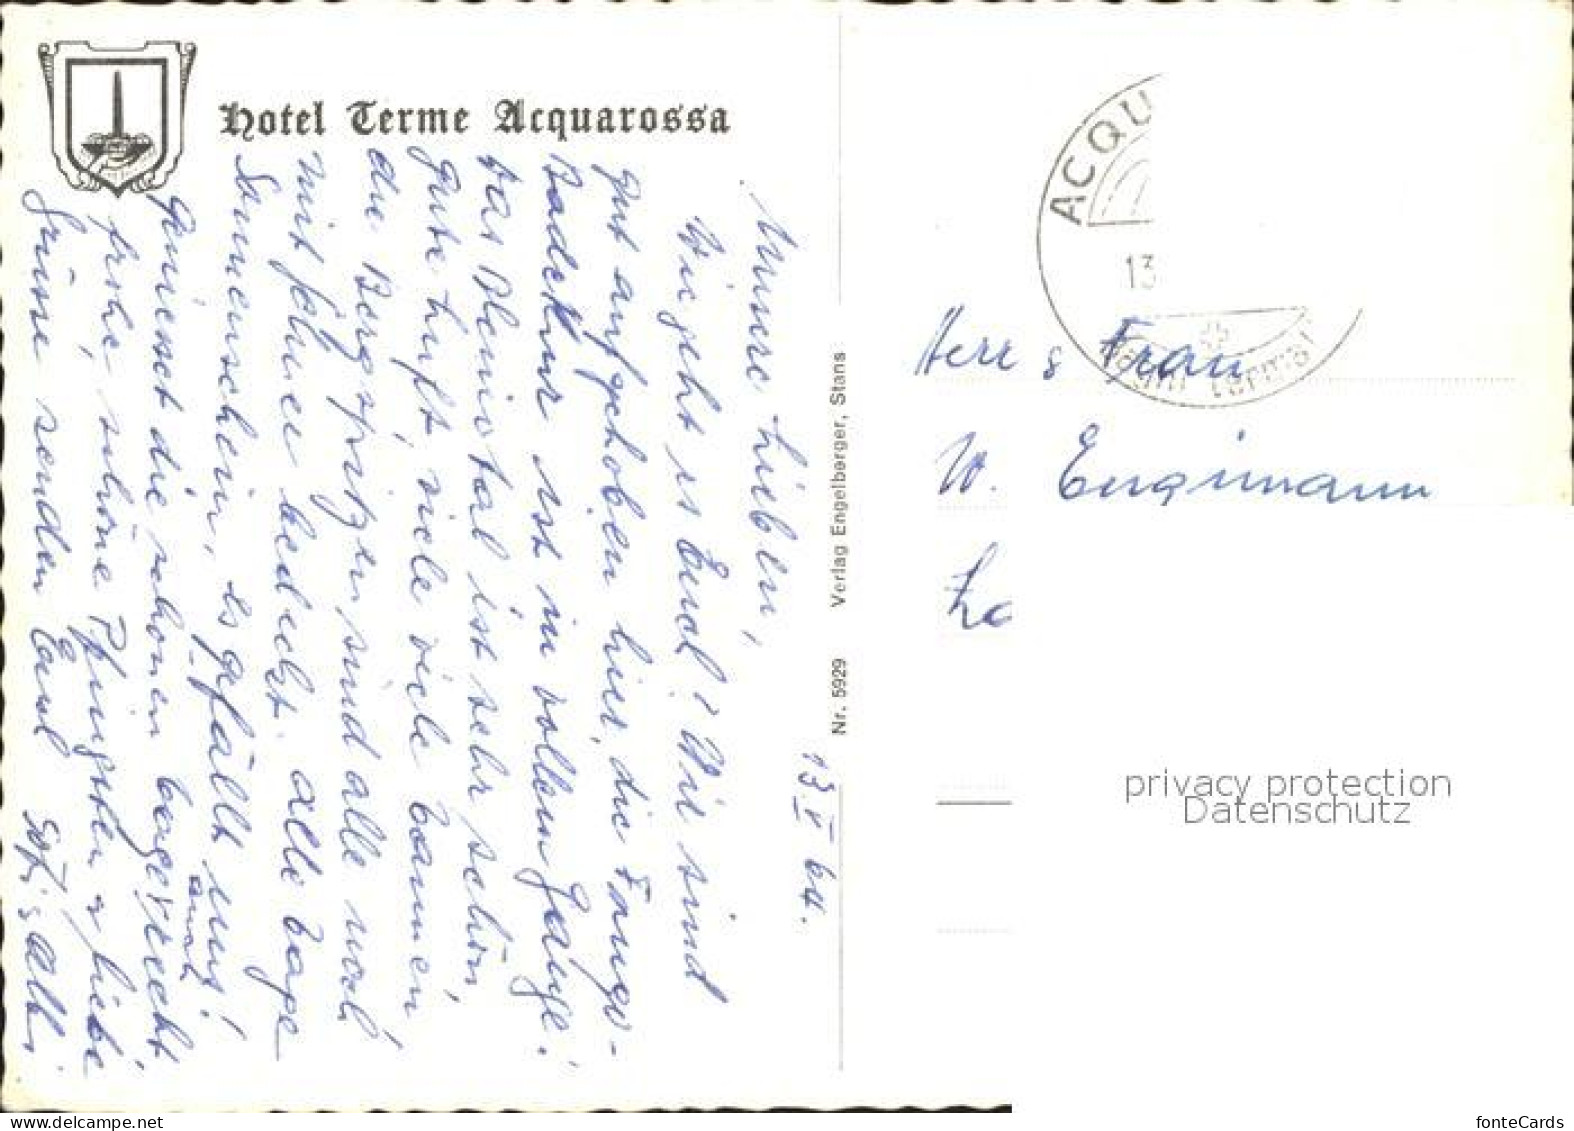 Hotel Terme Acquarossa
13. V 64.
Unsere Lieben,
Wie geht es Euch? Wir sind
gut aufgehoben hier, die Fango-
Badekur ist in vollem Gange!
Das Bleniotal ist sehr schön,
gute Luft, viele viele Baumen
die Bergspitzen sind alle noch
mit Schnee bedeckt. alle Tage
Sonnenschein, es gefällt uns!
Geniesset die schönen Tage recht
auch
frohe, schöne Pfingsten & liebe
Grüsse senden Euch
Nr. 5929 Verlag Engelberger, Stans
ACQU
13
Herr & Frau
W. Engimann
Lo
privacy protection
Datenschutz
fonteCards